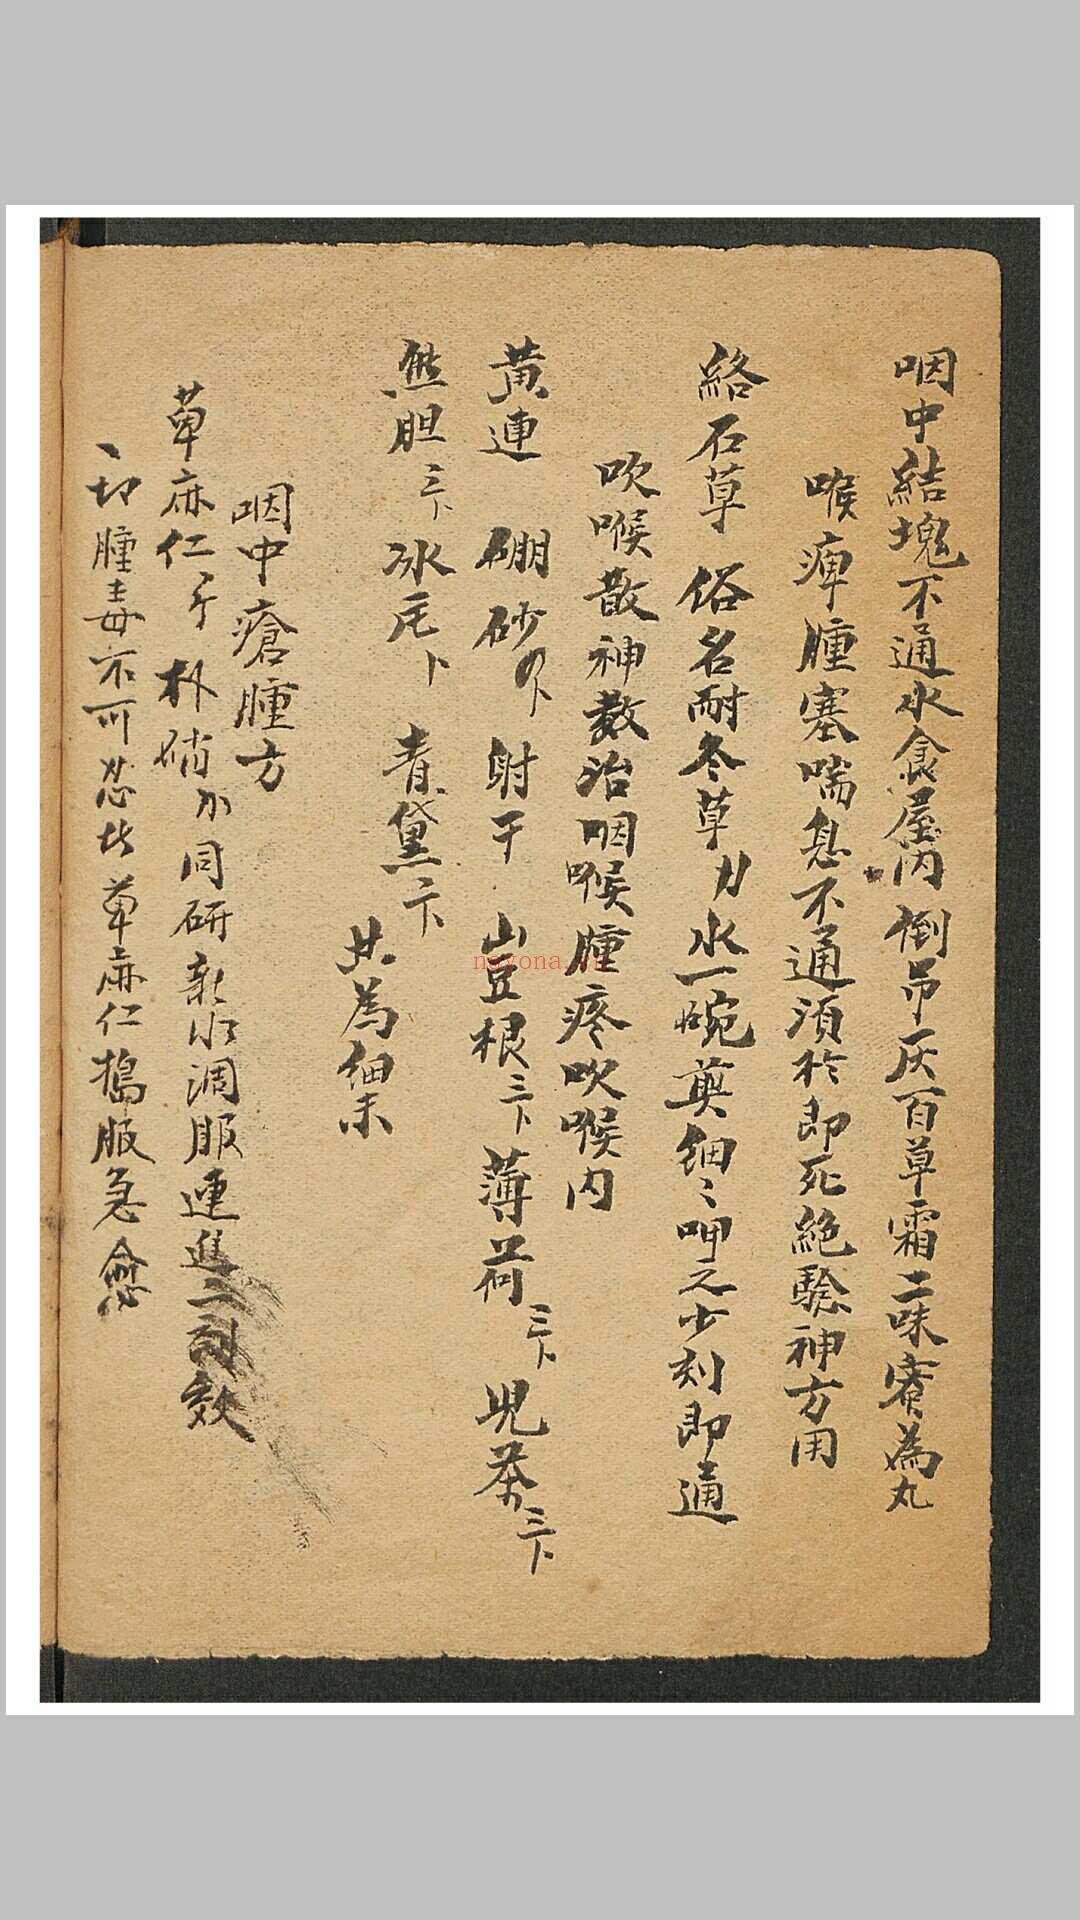 咽中結塊不通水食屋内倒吊灰百草霜二味蜜為丸
喉痺腫塞喘息不通須於即死絕驗神方用
絡石草 俗名耐冬草 水一碗煎細〻呷之少刻即通
吹喉散神效治咽喉腫疼吹喉内
黃連 硼砂 射干 山豆根三卜 薄荷三卜 兒茶三卜
熊胆三卜 冰片卜 青黛二卜
共為細末
咽中瘡腫方
草麻仁 朴硝 同研新水調服連進二効
一切腫毒不可忍者草麻仁搗服急愈
nayona.cn